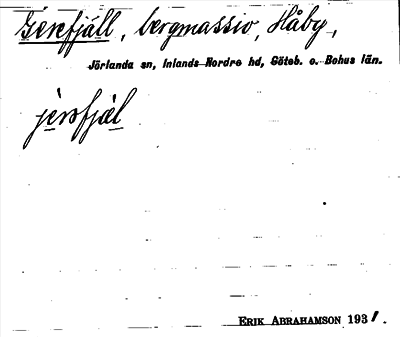 Gerefjäll, bergmassiv, Håby,
Jörlanda sn, Inlands Nordre hd, Göteb. o. Bohus län.
jèrəfjæl
ERIK ABRAHAMSON 1931.